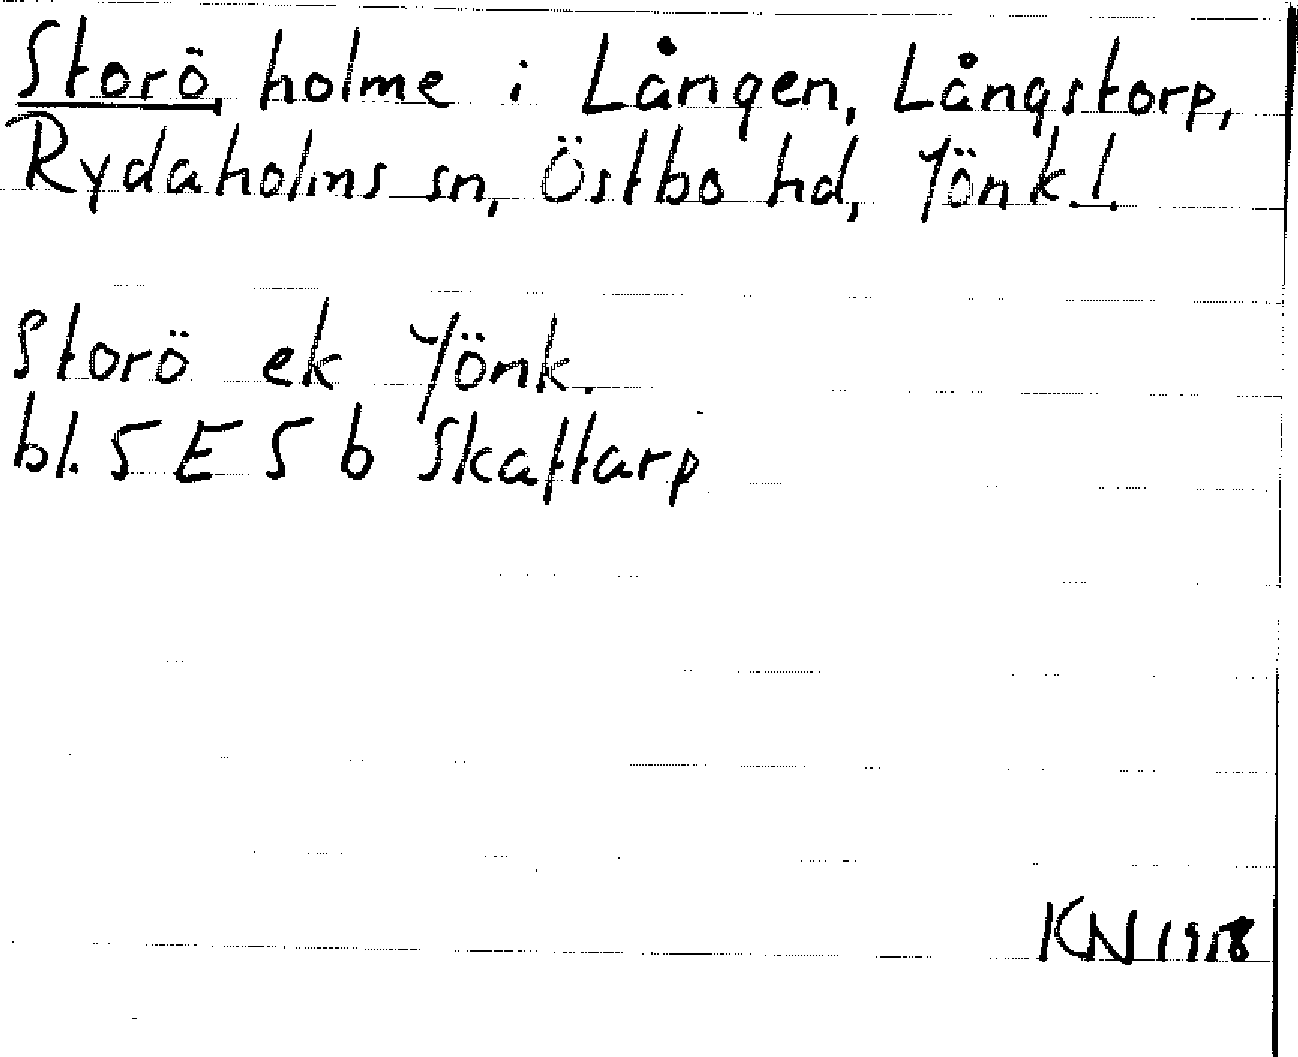 Storö, holme i Lången, Långstorp,
Rydaholms sn, Östbo hd, Jönk. l.
Storö ek Jönk.
bl. 5 E 5 b Skaftarp
KN 1958